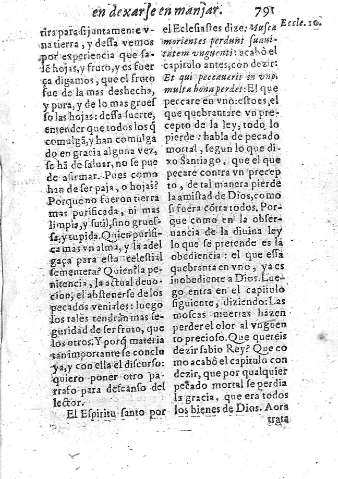 en dexarse en manjar. 791
tira para si juntamente v-
na tierra, y dessa vemos
por experiencia que sa-
le hojas, y fruto, y es fuer
ça digamos, que el fruto
fue de la mas deshecha,
y pura, y de lo mas grues-
so las hojas: dessa suerte,
entender que todos los q̃
comulgã, y han comulga
do en gracia alguna vez,
se hã de saluar, no se pue
de afirmar. Pues como
han de ser paja, o hojas?
Porque no fueron tierra
mas purificada, ni mas
limpia, y sutil, sino grues-
sa, y tupida. Quien purifi-
ca mas vn alma, y la adel
gaça para esta celestial
sementera? Quien? la pe-
nitencia, la actual deuo-
cion, el abstenerse de los
pecados venirles: luego
los tales tendran mas se-
guridad de ser fruto, que
los otros. Y porq̃ materia
tan importante se conclu
ya, y con ella el discurso:
quiero poner otro par-
rafo para descanso del
lector.
El Espiritu santo por
el Eclesiastes dize: Muscæ
morientes perdunt suaui-
tatem vnguenti: acabò el
capitulo antes, con dezir:
Et qui peccauerit in vno,
multa bona perdet: El que
peccare en vno: esto es, el
que quebrantare vn pre-
cepto de la ley, todo lo
pierde: habla de pecado
mortal, segun lo que di-
xo Santiago, que el que
pecare contra vn precep
to, de tal manera pierde
la amistad de Dios, como
si fuera cõtra todos. Por-
que como en la obser-
uancia de la diuina ley
lo que se pretende es la
obediencia: el que essa
quebranta en vno, ya es
inobediente a Dios. Lue-
go entra en el capitulo
siguiente, diziendo: Las
moscas muertas hazen
perder el olor al vnguen
to precioso. Que quereis
dezir sabio Rey? Que co
mo acabò el capitulo con
dezir, que por qualquier
pecado mortal se perdia
la gracia, que era todos
los bienes de Dios. Aora
trata
Eccle. 10.